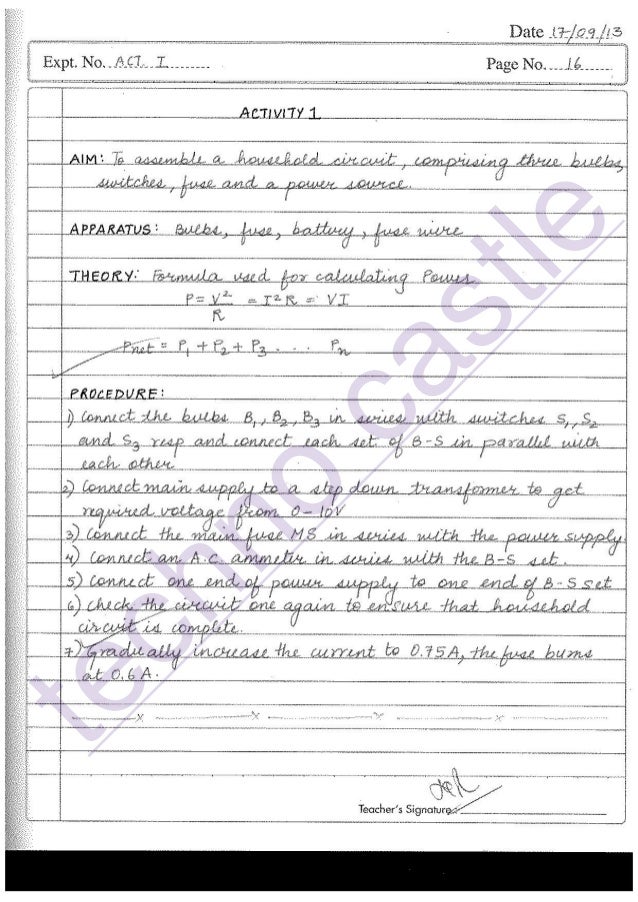 Date 17/09/13
Expt. No. ACT I
Page No. 16
ACTIVITY 1
AIM: To assemble a household circuit, comprising three bulbs,
switches, fuse and a power source.
APPARATUS: Bulbs, fuse, battery, fuse wire
THEORY: Formula used for calculating Power
P = V² = I²R = VI
R
Pnet = P₁ + P₂ + P₃ . . . . Pn
PROCEDURE:
1) Connect the bulbs B₁, B₂, B₃ in series with switches S₁, S₂
and S₃ resp and connect each set of B-S in parallel with
each other
2) Connect main supply to a step down transformer to get
required voltage from 0-10V
3) Connect the main fuse MS in series with the power supply.
4) Connect an A.C. ammeter in series with the B-S set.
5) Connect one end of power supply to one end of B-S set
6) Check the circuit one again to ensure that household
circuit is complete.
7) Gradually increase the current to 0.75A, the fuse burns
at 0.6 A.
x x x x
Teacher's Signature:
techno castle